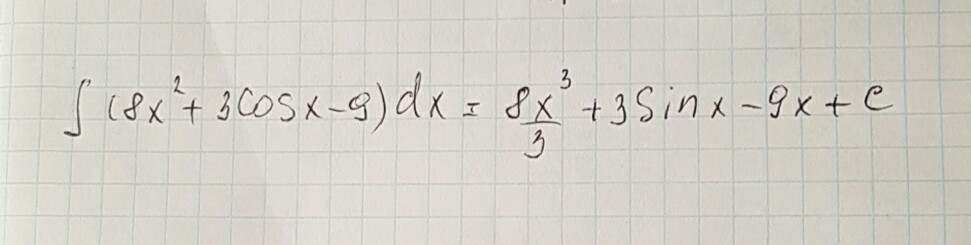 ∫ (8x² + 3cosx - 9) dx = 8x³/3 + 3sinx - 9x + c